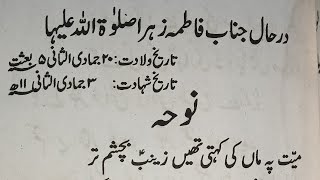 در حال جناب فاطمہ زہرا صلوٰۃ اللہ علیہا
تاریخ ولادت: ۲۰ جمادی الثانی ۵ بعثت
تاریخ شہادت: ۳ جمادی الثانی ۱۱ھ
نوحہ
میّت پہ ماں کی کہتی تھیں زینبؑ بچشمِ تر